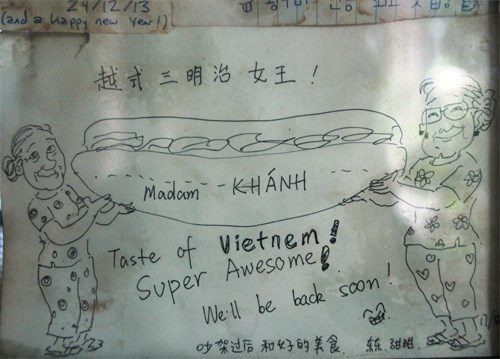 24/12/13
(and a happy new year!)
越式三明治女王!
Madam KHÁNH
Taste of Vietnem!
Super Awesome!
We'll be back soon!
吵架过后和好的美食.
甜甜